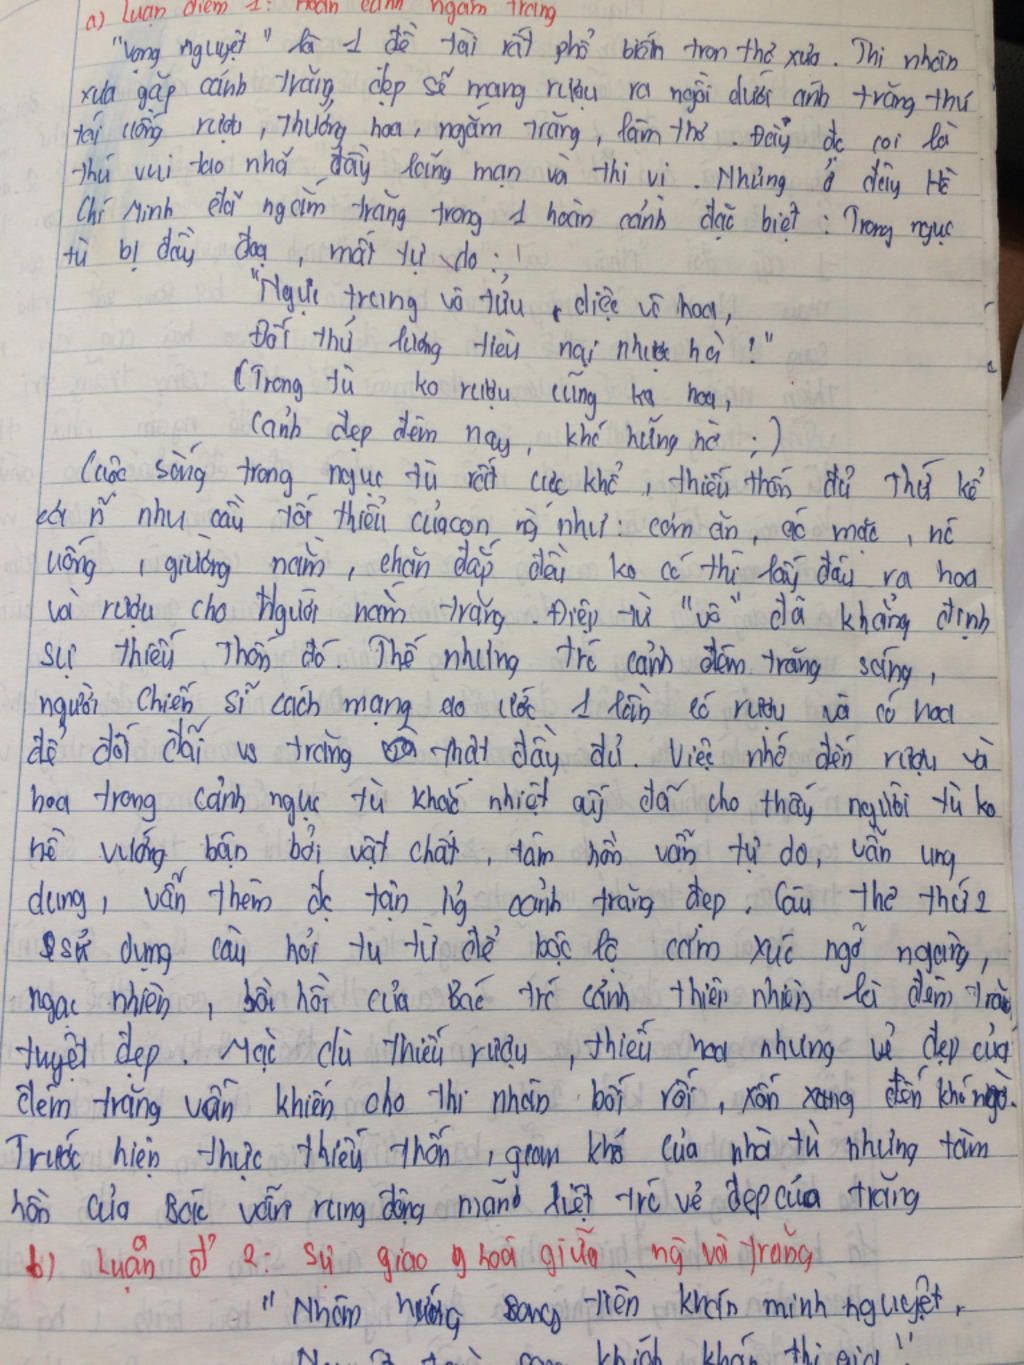 a) Luận điểm 1: Hoàn cảnh ngắm trăng
"Vọng nguyệt" là 1 đề tài rất phổ biến tron thơ xưa. Thi nhân
xưa gặp cảnh trăng đẹp sẽ mang rượu ra ngồi dưới ánh trăng thư
thái uống rượu, thưởng hoa, ngắm trăng, làm thơ. Đây đc coi là
thú vui tao nhã đầy lãng mạn và thi vị. Nhưng ở đây Hồ
Chí Minh đã ngắm trăng trong 1 hoàn cảnh đặc biệt: Trong ngục
tù bị đầy đoạ, mất tự do:
"Ngục trung vô tửu diệc vô hoa,
Đối thử lương tiêu nại nhược hà!"
(Trong tù ko rượu cũng ko hoa,
Cảnh đẹp đêm nay, khó hững hờ;)
Cuộc sống trong ngục tù rất cực khổ, thiếu thốn đủ thứ kể
cả n~ nhu cầu tối thiểu của con ng` như: cơm ăn, áo mặc, nc
uống, giường nằm, chăn đắp đều ko có thì lấy đâu ra hoa
và rượu cho Người ngắm trăng. Điệp từ "vô" đã khẳng định
sự thiếu thốn đó. Thế nhưng trc cảnh đêm trăng sáng,
người chiến sĩ cách mạng ao ước 1 lần có rượu và có hoa
để đối đãi vs trăng thật đầy đủ. Việc nhớ đến rượu và
hoa trong cảnh ngục tù khắc nhiệt ấy đã cho thấy người tù ko
hề vướng bận bởi vật chất, tâm hồn vẫn tự do, vẫn ung
dung, vẫn thèm đc tận hg cảnh trăng đẹp. Câu thơ thứ 2
sử dụng câu hỏi tu từ để bộc lộ cảm xúc ngỡ ngàng,
ngạc nhiên, bồi hồi của Bác trc cảnh thiên nhiên là đêm trăng
tuyệt đẹp. Mặc dù thiếu rượu, thiếu hoa nhưng vẻ đẹp của
đêm trăng vẫn khiến cho thi nhân bối rối, xốn xang đến khó ngờ.
Trước hiện thực thiếu thốn, gian khổ của nhà tù nhưng tâm
hồn của Bác vẫn rung động mãnh liệt trc vẻ đẹp của trăng
b) Luận đ' 2: Sự giao hoà giữa ng` và trăng
"Nhân hướng song tiền khán minh nguyệt,
khích khán thi gia"